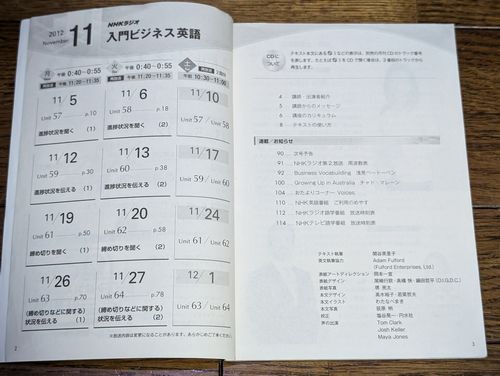 2012
November
11
NHKラジオ
入門ビジネス英語
月 午後 0:40–0:55
午前 11:20–11:35
火 午後 0:40–0:55
午前 11:20–11:35
土 2回分
午前 10:30–11:00
11/5
Unit 57 p.10
進捗状況を聞く (1)
11/6
Unit 58 p.18
進捗状況を聞く (2)
11/10
Unit 57/Unit 58
11/12
Unit 59 p.30
進捗状況を伝える (1)
11/13
Unit 60 p.38
進捗状況を伝える (2)
11/17
Unit 59/Unit 60
11/19
Unit 61 p.50
締め切りを聞く (1)
11/20
Unit 62 p.58
締め切りを聞く (2)
11/24
Unit 61/Unit 62
11/26
Unit 63 p.70
(締め切りなどに関する)
状況を伝える (1)
11/27
Unit 64 p.78
(締め切りなどに関する)
状況を伝える (2)
12/1
Unit 63/Unit 64
※放送内容は変更になることがあります。あらかじめご了承ください。
2
CDに
ついて
テキスト文にある 1 などの表示は、別売の月刊CDのトラック番号
を表します。たとえば 3 をCDで聞く場合は、3 番目のトラックから
再生します。
4 講師・出演者紹介
5 講師からのメッセージ
6 講座のカリキュラム
8 テキストの使い方
連載/お知らせ
90 次号予告
91 NHKラジオ第2放送 周波数表
92 Business Vocabuilding 浅見ベートーベン
100 Growing Up in Australia チャド・マレーン
104 おたよりコーナー Voices
110 NHK英語番組 ご利用のめやす
112 NHKラジオ語学番組 放送時刻表
114 NHKテレビ語学番組 放送時刻表
テキスト執筆 関谷英里子
英文執筆協力 Adam Fulford
(Fulford Enterprises, Ltd.)
表紙アートディレクション 岡本一宣
表紙デザイン
表紙写真
本文デザイン
本文イラスト わたなべまき
本文写真
校正
声の出演 Tom Clark
Josh Keller
Maya Jones
3